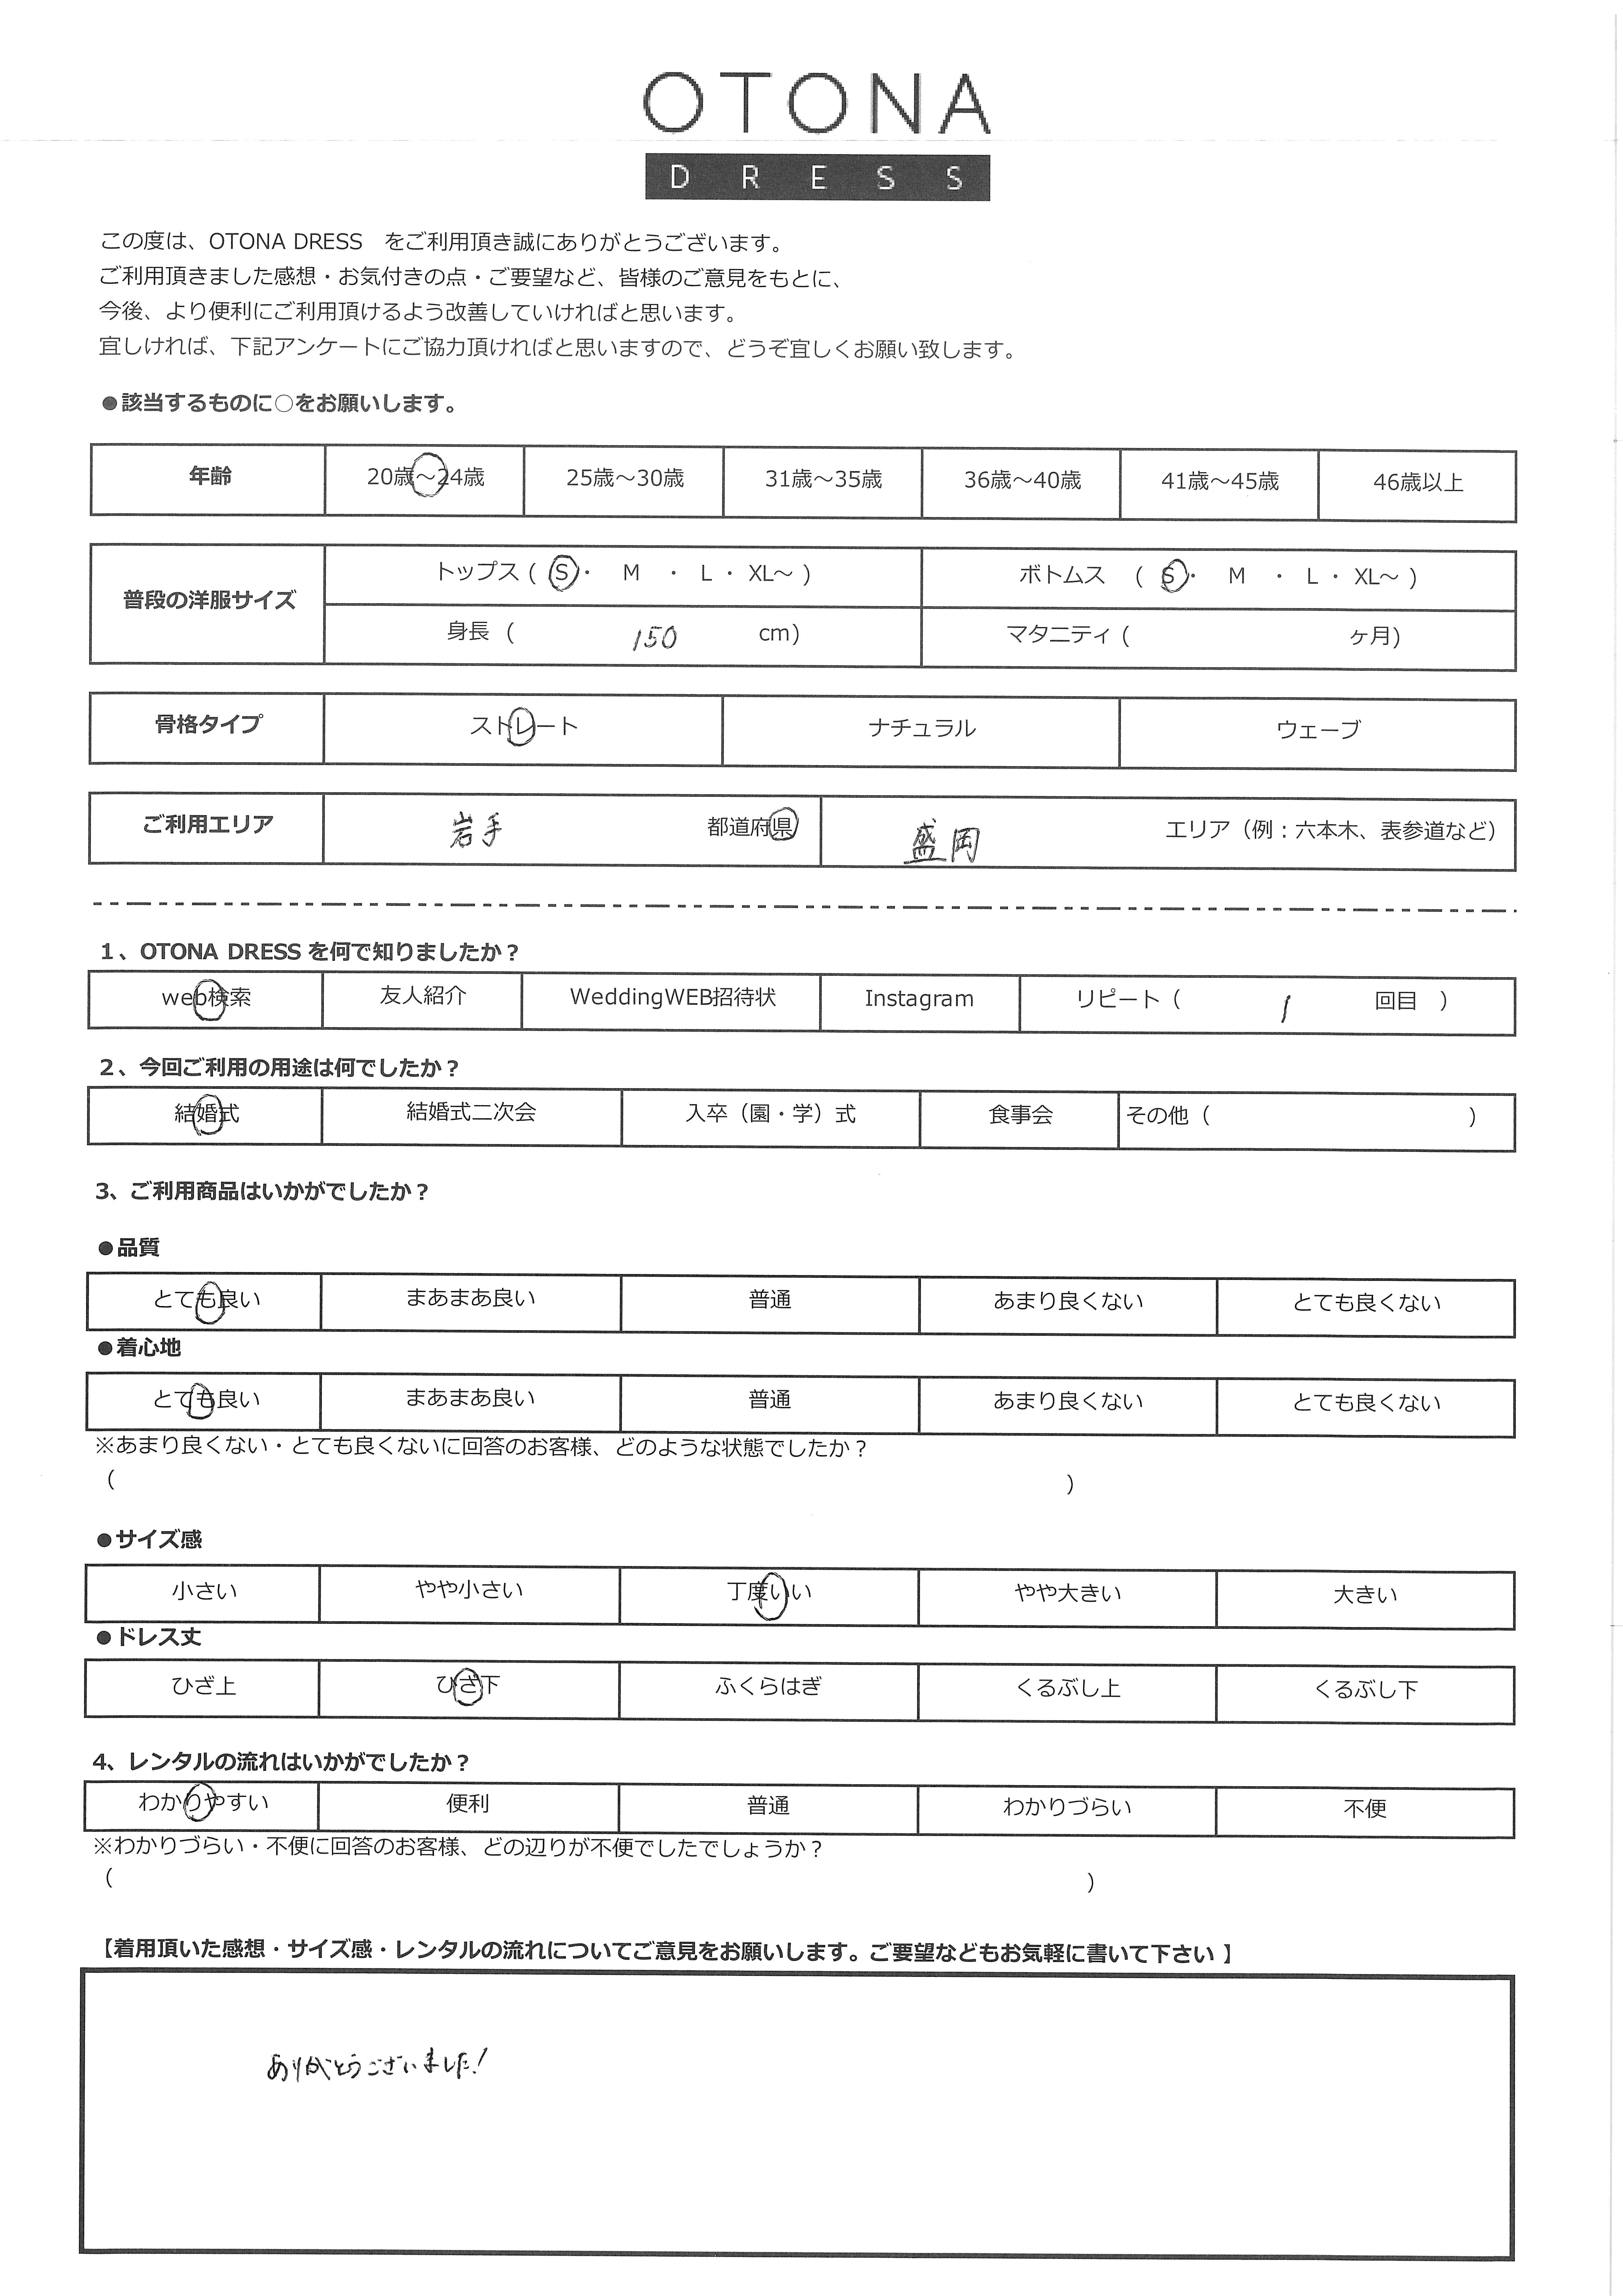 OTONA
DRESS
この度は、OTONA DRESS　をご利用頂き誠にありがとうございます。
ご利用頂きました感想・お気付きの点・ご要望など、皆様のご意見をもとに、
今後、より便利にご利用頂けるよう改善していければと思います。
宜しければ、下記アンケートにご協力頂ければと思いますので、どうぞ宜しくお願い致します。
●該当するものに○をお願いします。
年齢 20歳～24歳 25歳～30歳 31歳～35歳 36歳～40歳 41歳～45歳 46歳以上
普段の洋服サイズ トップス ( S ・ M ・ L ・ XL～ ) ボトムス ( S ・ M ・ L ・ XL～ )
身長 ( 150 cm) マタニティ ( ヶ月)
骨格タイプ ストレート ナチュラル ウェーブ
ご利用エリア 岩手 都道府県 盛岡 エリア（例：六本木、表参道など）
1、OTONA DRESS を何で知りましたか？
web検索 友人紹介 WeddingWEB招待状 Instagram リピート（ 1 回目 ）
2、今回ご利用の用途は何でしたか？
結婚式 結婚式二次会 入卒（園・学）式 食事会 その他（ ）
3、ご利用商品はいかがでしたか？
●品質
とても良い まあまあ良い 普通 あまり良くない とても良くない
●着心地
とても良い まあまあ良い 普通 あまり良くない とても良くない
※あまり良くない・とても良くないに回答のお客様、どのような状態でしたか？
（ ）
●サイズ感
小さい やや小さい 丁度いい やや大きい 大きい
●ドレス丈
ひざ上 ひざ下 ふくらはぎ くるぶし上 くるぶし下
4、レンタルの流れはいかがでしたか？
わかりやすい 便利 普通 わかりづらい 不便
※わかりづらい・不便に回答のお客様、どの辺りが不便でしたでしょうか？
（ ）
【着用頂いた感想・サイズ感・レンタルの流れについてご意見をお願いします。ご要望などもお気軽に書いて下さい 】
ありがとうございました！